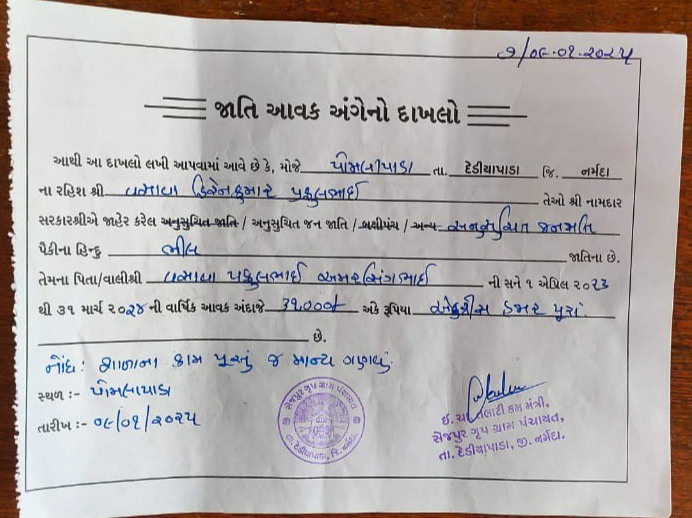 ૭/૦૯-૦૧-૨૦૨૫
જાતિ આવક અંગેનો દાખલો
આથી આ દાખલો લખી આપવામાં આવે છે કે, મોજે પોમલાપાડા તા. દેડીયાપાડા જિ. નર્મદા
ના રહિશ શ્રી વસાવા હિરેનકુમાર પ્રફુલભાઈ તેઓ શ્રી નામદાર
સરકારશ્રીએ જાહેર કરેલ અનુસુચિત જાતિ / અનુસુચિત જન જાતિ / બક્ષીપંચ / અન્ય અનુસુચિત જનજાતિ
પૈકીના હિન્દુ ભીલ જાતિના છે.
તેમના પિતા/વાલીશ્રી વસાવા પ્રફુલભાઈ અમરસિંગભાઈ ની સને ૧ એપ્રિલ ૨૦૨૩
થી ૩૧ માર્ચ ૨૦૨૪ ની વાર્ષિક આવક અંદાજે ૩૧૦૦૦/ અંકે રૂપિયા એકત્રીસ હજાર પૂરા
છે.
નોંધ: શાળાના કામ પૂરતું જ માન્ય ગણવું.
સ્થળ :- પોમલાપાડા
તારીખ :- ૦૯/૦૧/૨૦૨૫
સેજપુર ગ્રુપ ગ્રામ પંચાયત
તા. દેડીયાપાડા, જિ. નર્મદા.
ઈ. ચા. તલાટી કમ મંત્રી,
સેજપુર ગૃપ ગ્રામ પંચાયત,
તા. દેડીયાપાડા, જી. નર્મદા.